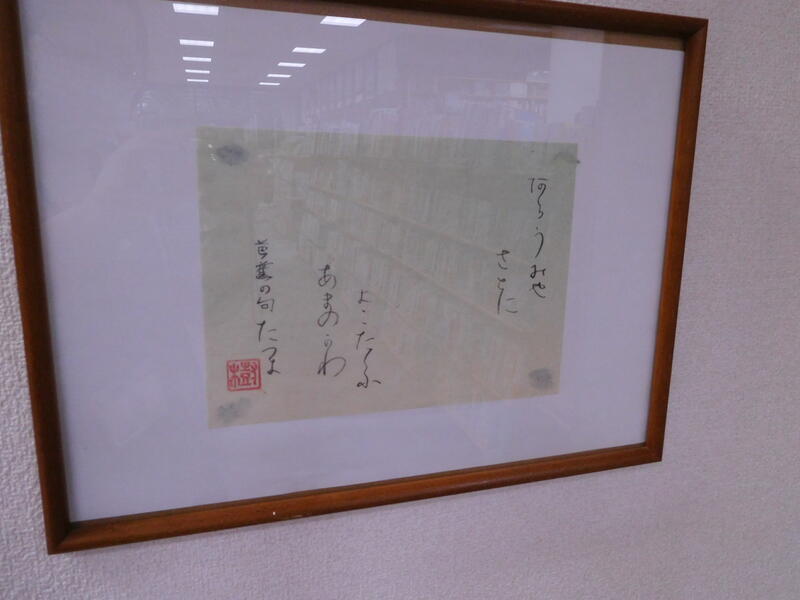 あらうみや
さとに
よこたふ
あまのかわ
芭蕉の句 たつま
樹